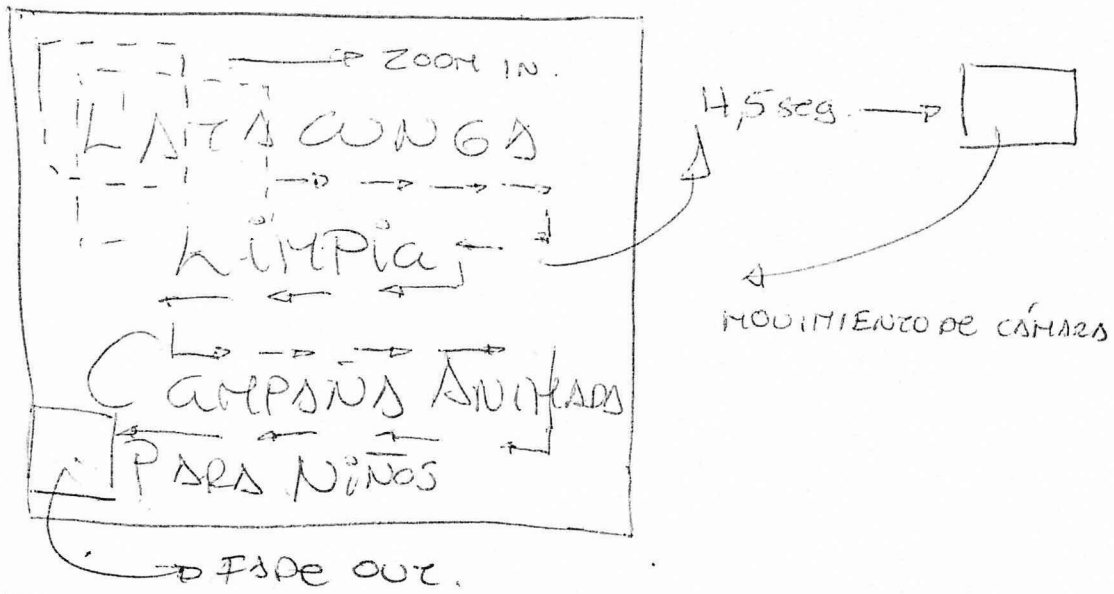 ZOOM IN.
LATACUNGA
LIMPIA
CAMPAÑA ANIMADA
PARA NIÑOS
FADE OUT.
4,5 seg.
MOVIMIENTO DE CÁMARA